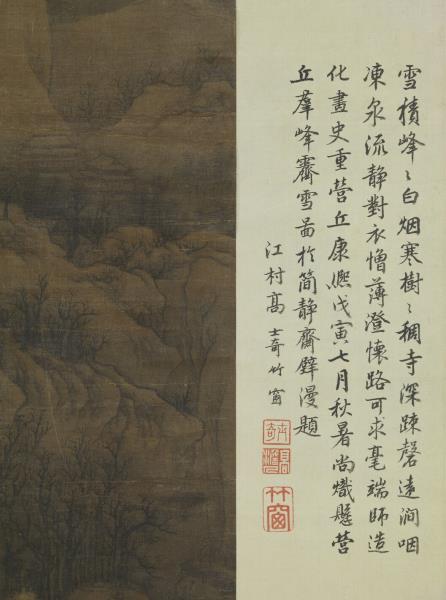 雪積峰〻白烟寒樹〻稠寺深疎磬遠澗咽
凍泉流静對衣憎薄澄懷路可求毫端師造
化畫史重營丘康熈戊寅七月秋暑尚熾懸營
丘羣峰霽雪啚於简静齋壁漫題
江村高士奇竹窗
竹窗